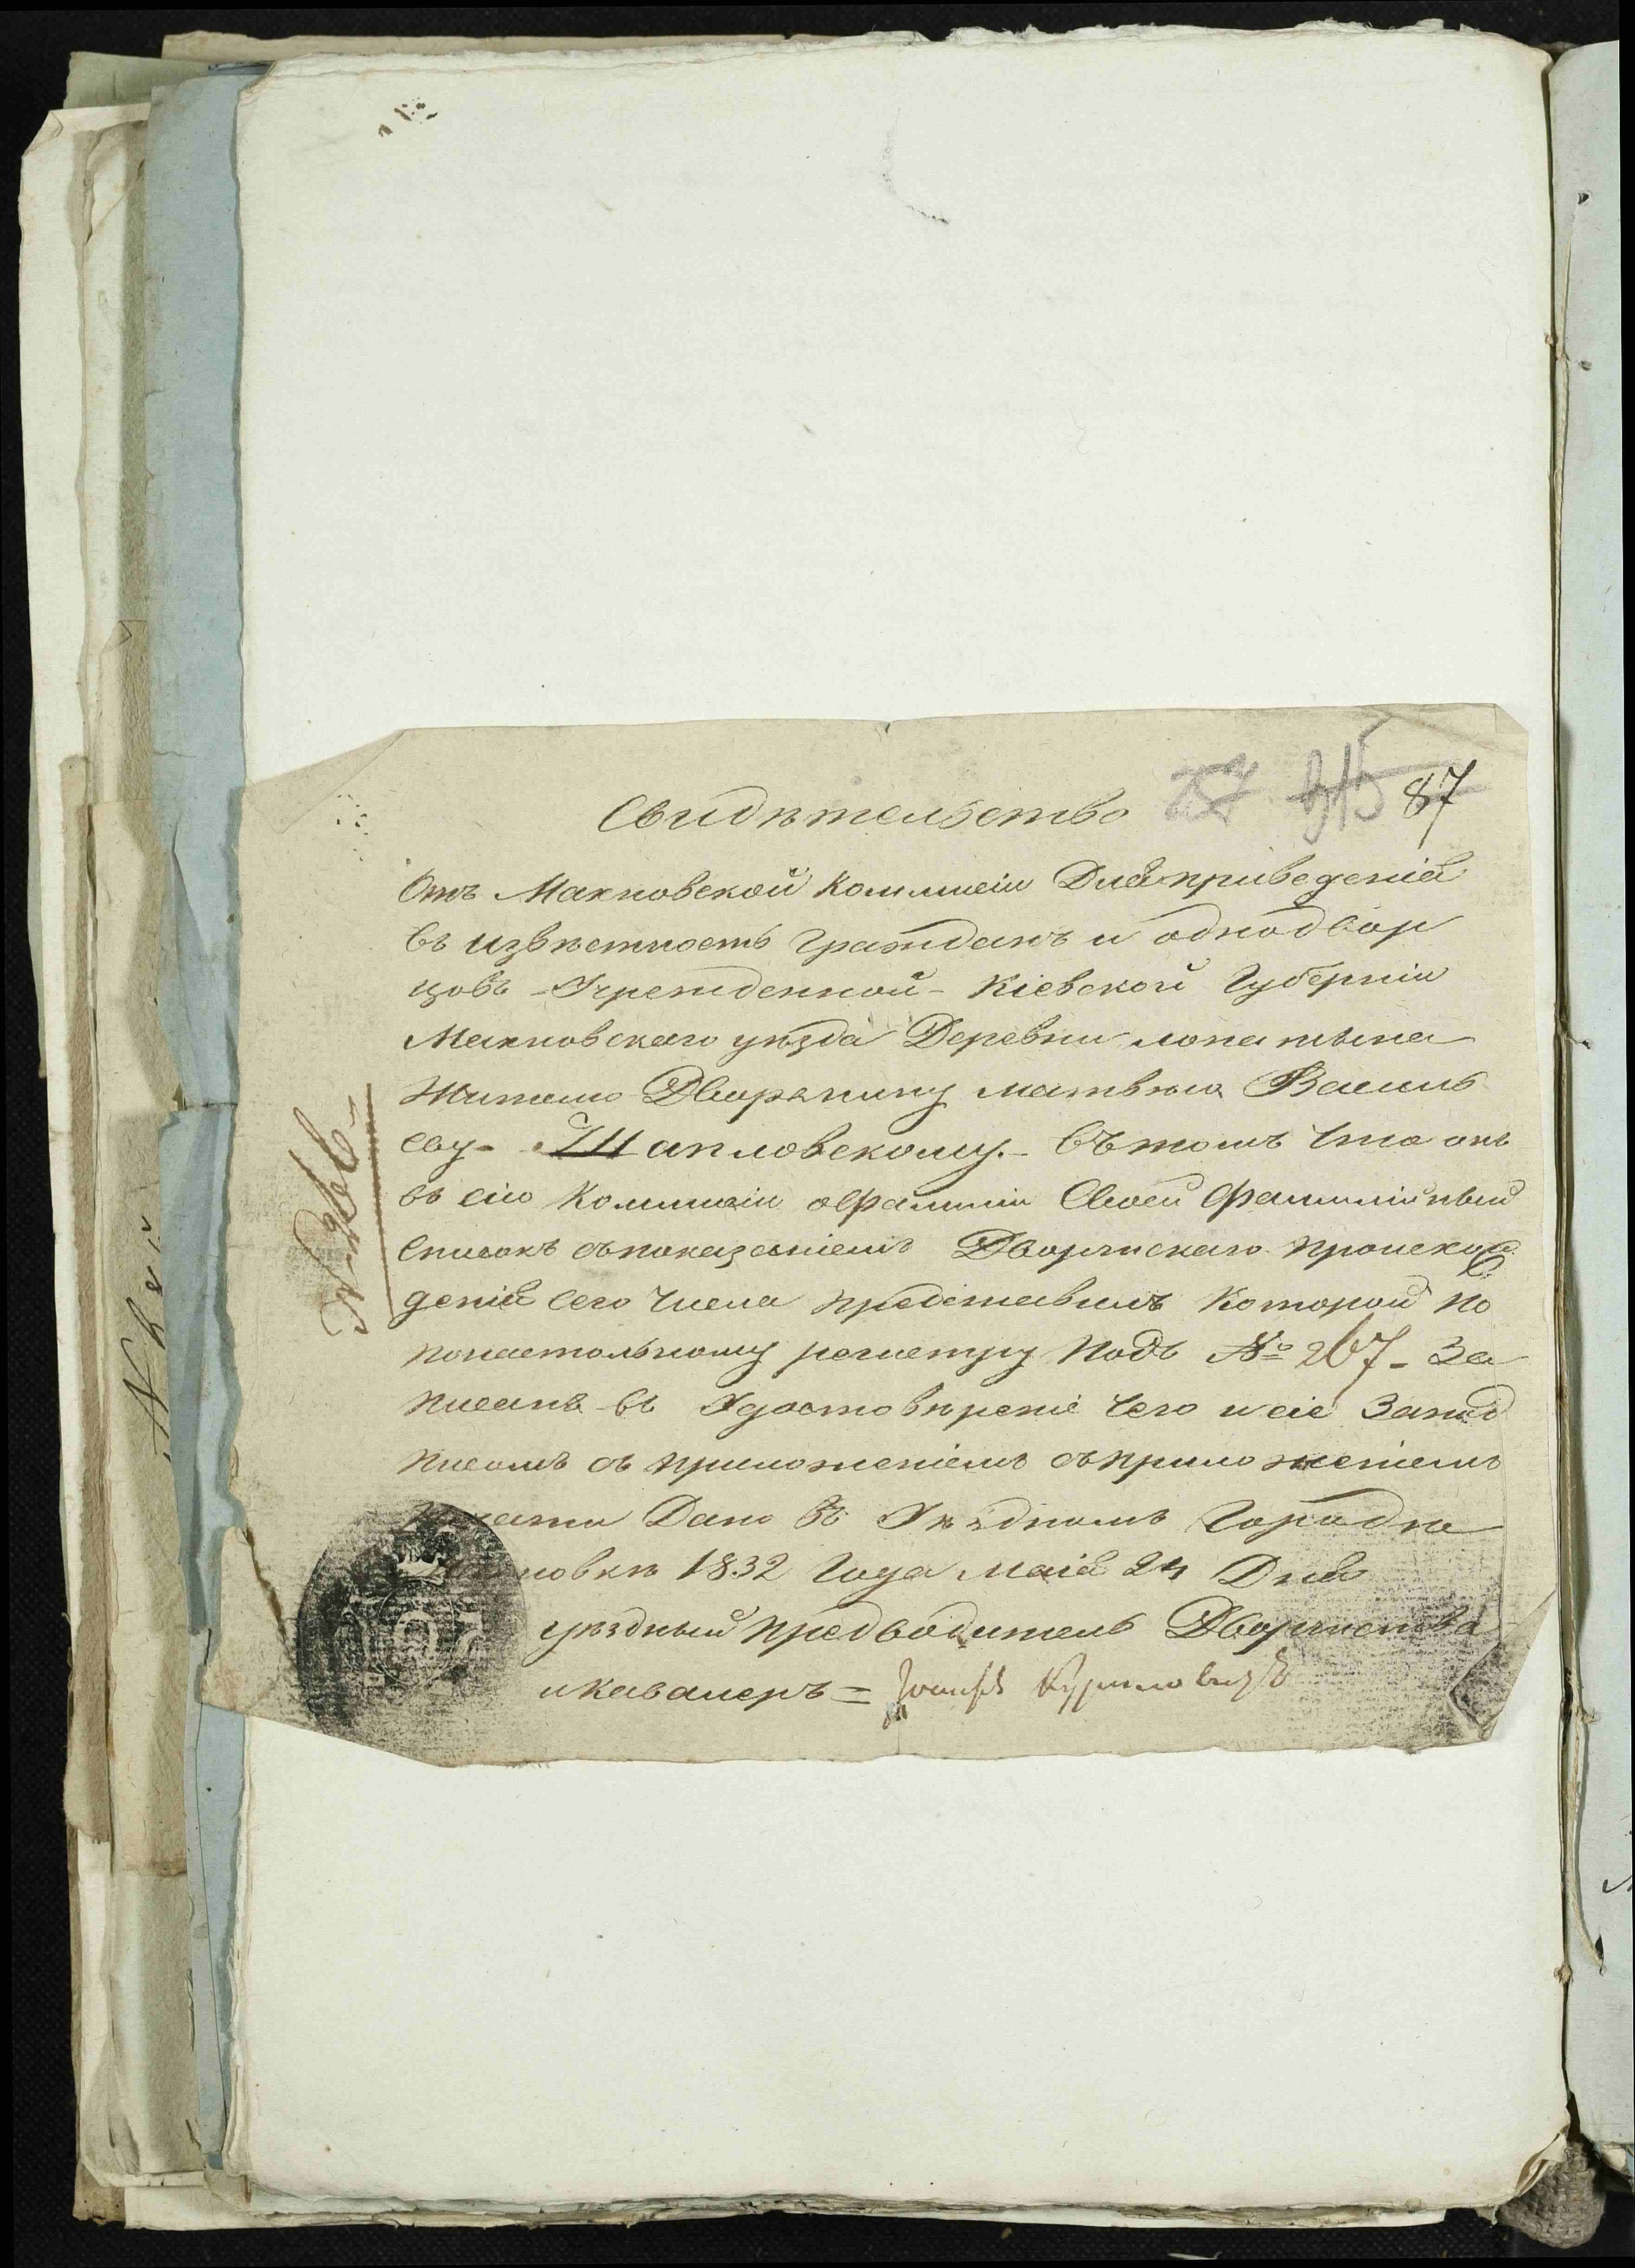 87
Свидѣтельство
Отъ Махновской Коммисіи Для приведенія
въ извѣстность гражданъ и однодвор
цовъ – Учрежденной – Кіевской Губерніи
Махновскаго уѣзда Деревни Лопатына
Жителю Дворянину Матвѣю Василь
еву – Шапловскому. – Въ томъ Что онъ
въ сію Коммисію о Фамиліи Своей Фамилійный
Списокъ съ показаніемъ Дворянскаго происхож
денія сего Числа представилъ Который по
понастольному регистру подъ № 267 – За
писанъ въ Удостовѣреніе Чего и сіе За под
писомъ съ приложеніемъ съ приложеніемъ
печати Дано Въ Уѣздномъ Городкѣ
новкѣ 1832 Года Маія 24 Дня
уѣздный предводитель Дворянства
и кавалеръ = Іосифъ